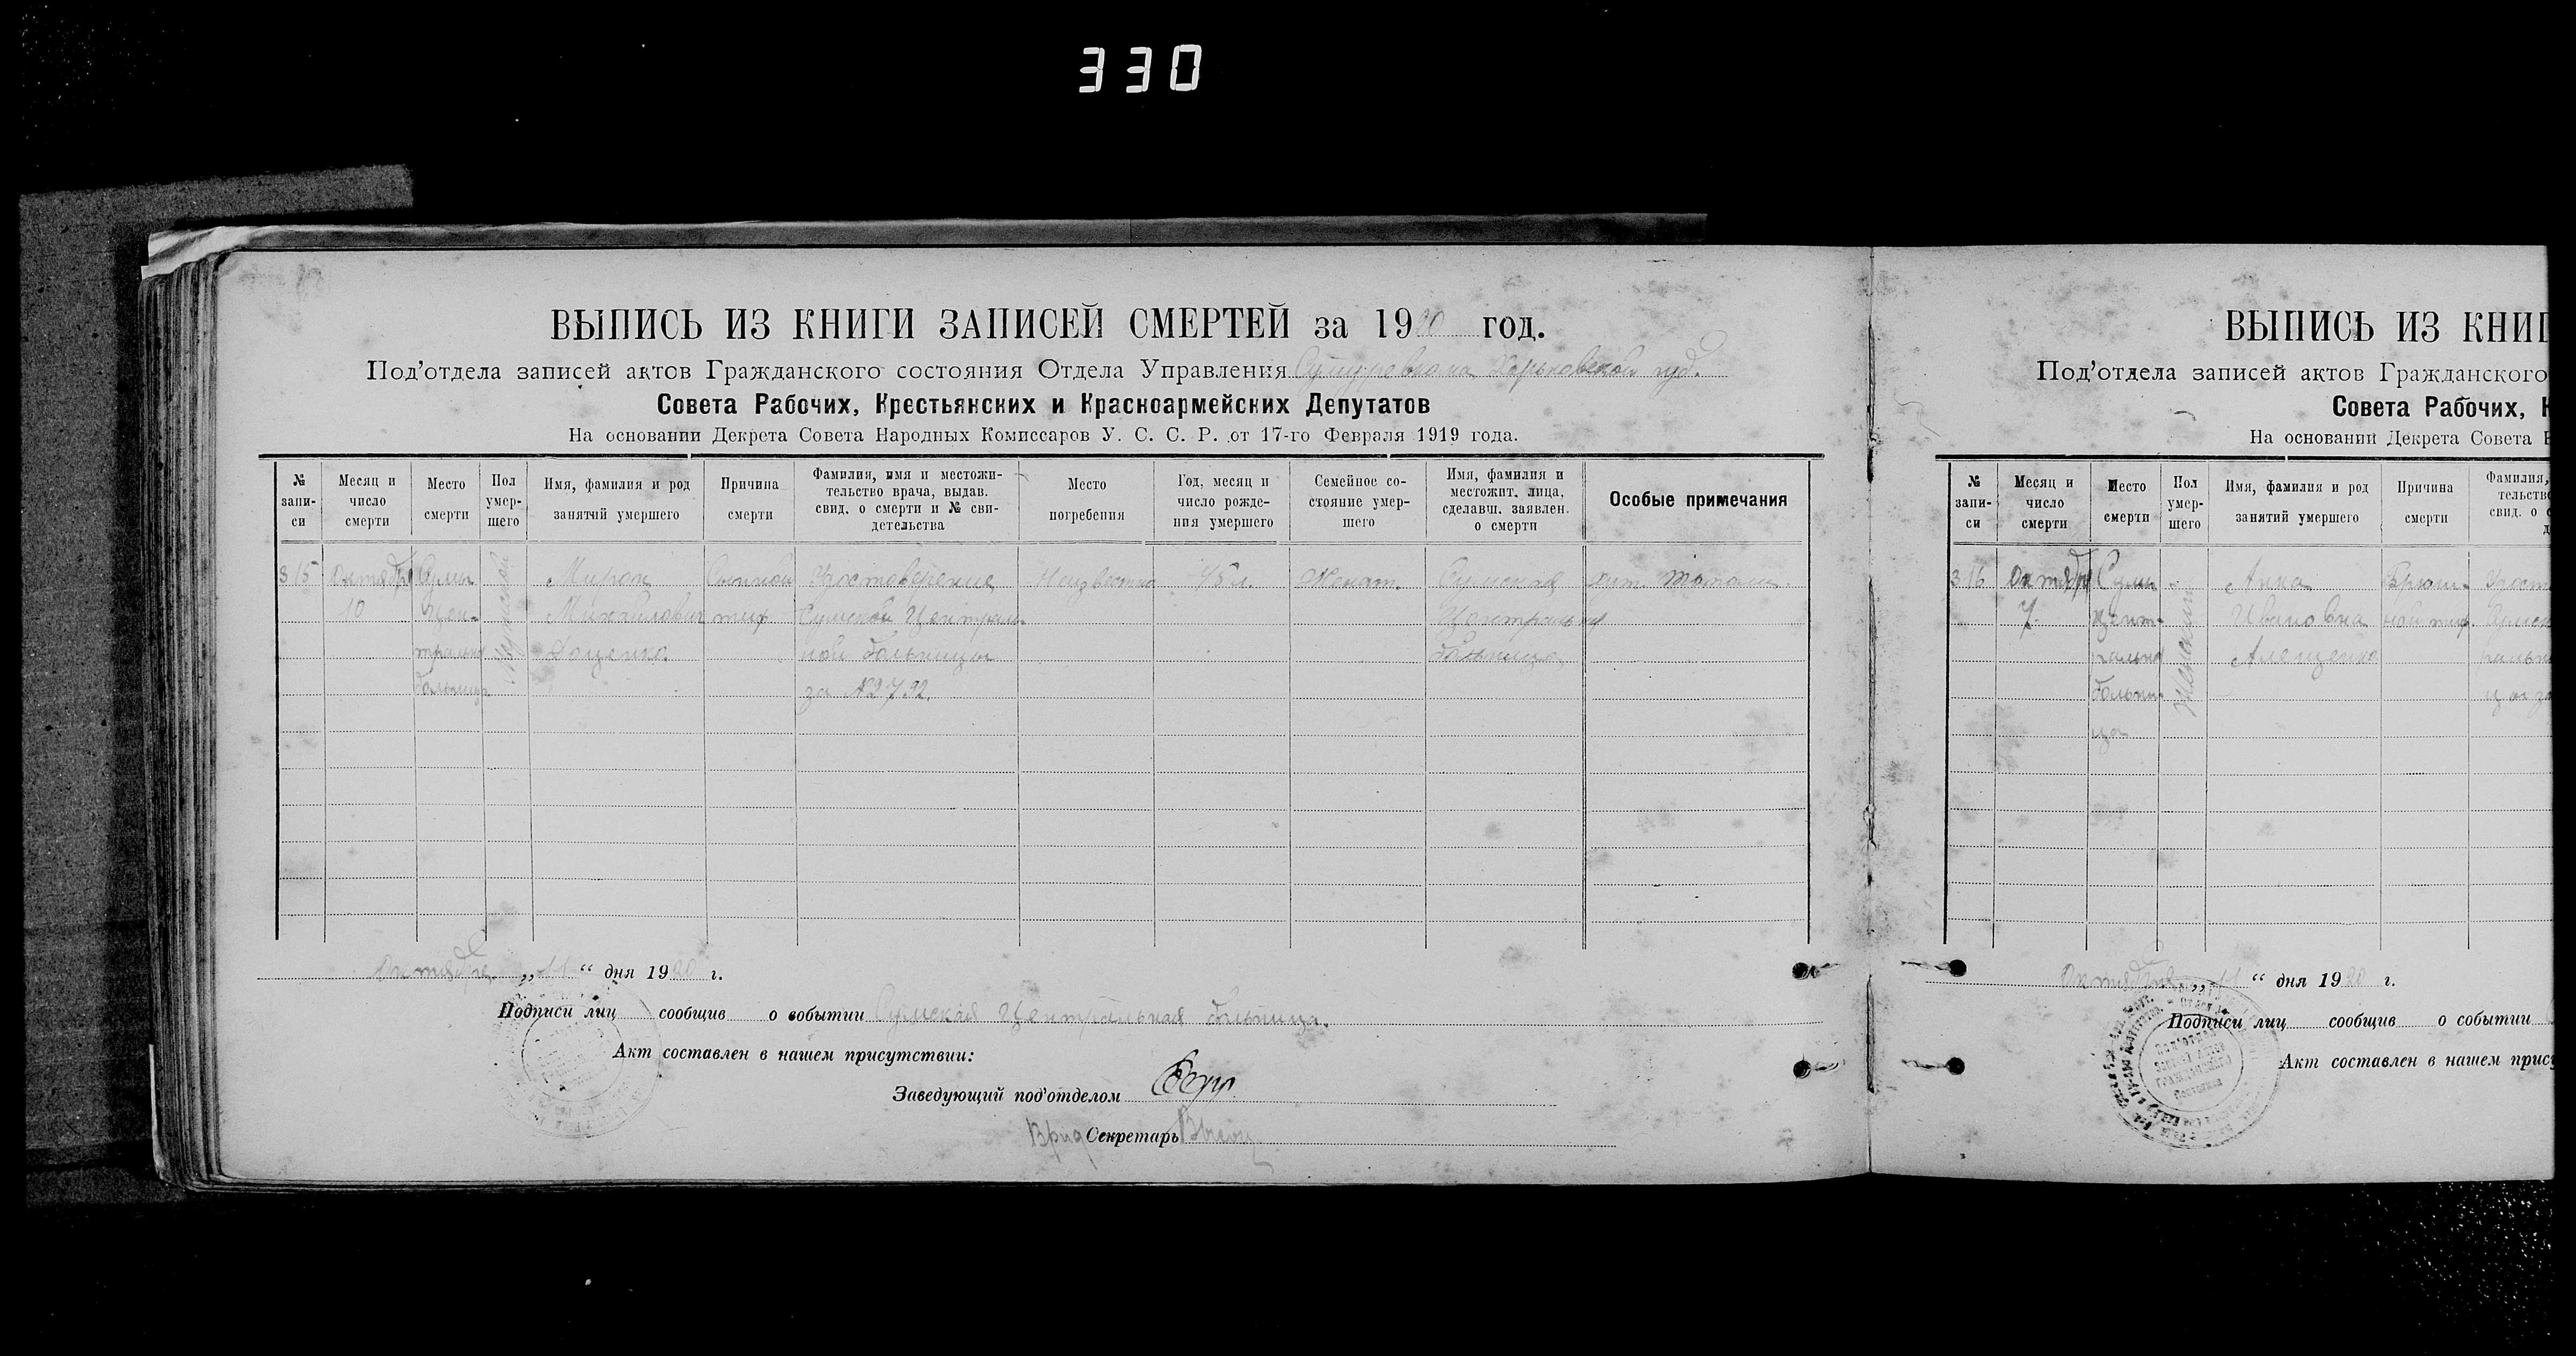 330
ВЫПИСЬ ИЗ КНИГИ ЗАПИСЕЙ СМЕРТЕЙ за 1920 год.
Под'отдела записей актов Гражданского состояния Отдела Управления Сумуревкома Харьковской губ.
Совета Рабочих, Крестьянских и Красноармейских Депутатов
На основании Декрета Совета Народных Комиссаров У. С. С. Р. от 17-го Февраля 1919 года.
№ запи- си
Месяц и число смерти
Место смерти
Пол умер- шего
Имя, фамилия и род занятий умершего
Причина смерти
Фамилия, имя и местожи- тельство врача, выдав. свид. о смерти и № сви- детельства
Место погребения
Год, месяц и число рожде- ния умершего
Семейное со- стояние умер- шего
Имя, фамилия и местожит. лица, сделавш. заявлен. о смерти
Особые примечания
315 Октября Сумы Мужской Мирон Сыпной Удостоверение Неизвестно 45 л. Женат. Сумская
10 Цен- Михайлович тиф Сумской Централь- Центральная
тральна Доценко ной больницы больница
больница за № 2792.
Октября „11“ дня 1920 г.
Подписи лиц сообщив о событии Сумская Центральная больница.
Акт составлен в нашем присутствии:
Заведующий под'отделом
Врид Секретарь
ВЫПИСЬ ИЗ КНИГ
Под'отдела записей актов Гражданского
Совета Рабочих, К
На основании Декрета Совета
№ запи- си
Месяц и число смерти
Место смерти
Пол умер- шего
Имя, фамилия и род занятий умершего
Причина смерти
Фамилия, тельство свид. о с
316 Октября Сумы Женский Анна Брюш- Удост
7 цент- Ивановна ной тиф. Сумск
рально Алещенко ральн
больни- цы за
ца
Октября „11“ дня 1920 г.
Подписи лиц сообщив о событии
Акт составлен в нашем прису